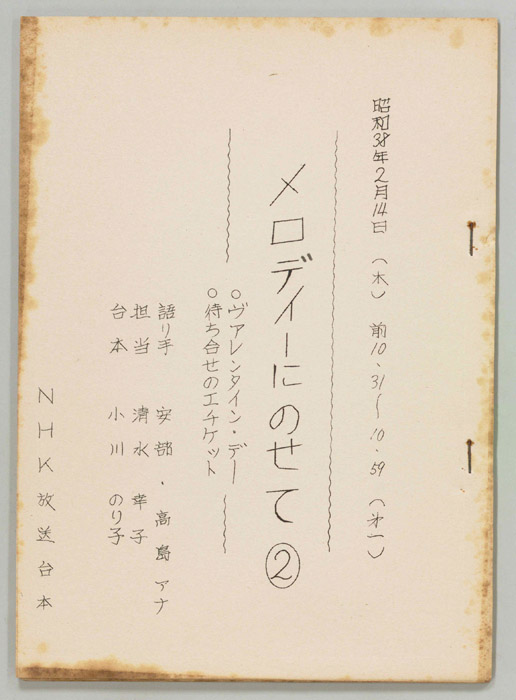 昭和38年2月14日 (木) 前10.31〜10.59 (才一)
メロディーにのせて②
○ヴァレンタイン・デー
○待ち合せのエチケット
語り手 安部・高島アナ
担当 清水 幸子
台本 小川 のり子
NHK放送台本